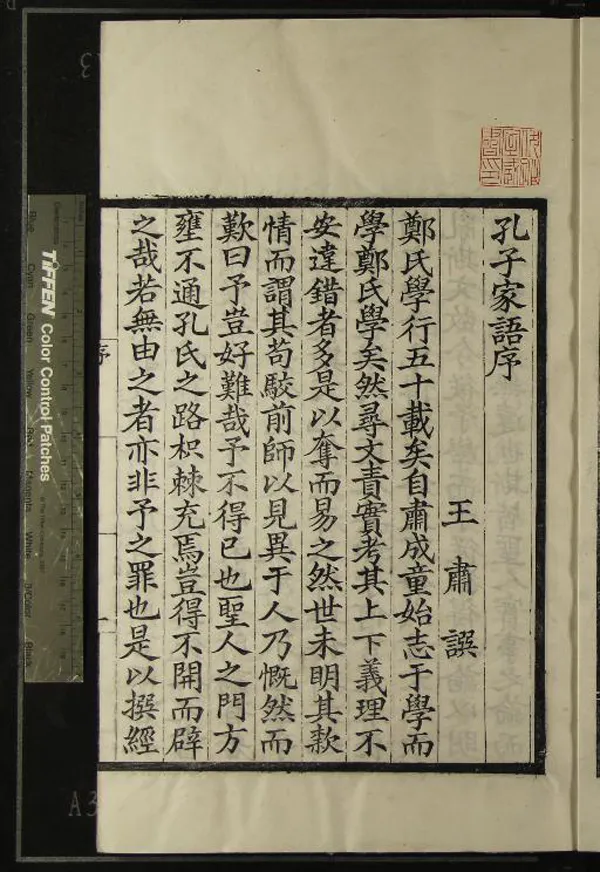 孔子家語序
王肅譔
鄭氏學行五十載矣自肅成童始志于學而
學鄭氏學矣然尋文責實考其上下義理不
安違錯者多是以奪而易之然世未明其款
情而謂其苟駮前師以見異于人乃慨然而
歎曰予豈好難哉予不得已也聖人之門方
壅不通孔氏之路枳棘充焉豈得不開而辟
之哉若無由之者亦非予之罪也是以撰經
序
一
TIFFEN Color Control Patches
Blue
Cyan
Green
Yellow
Red
Magenta
White
3/Color
Black
A3